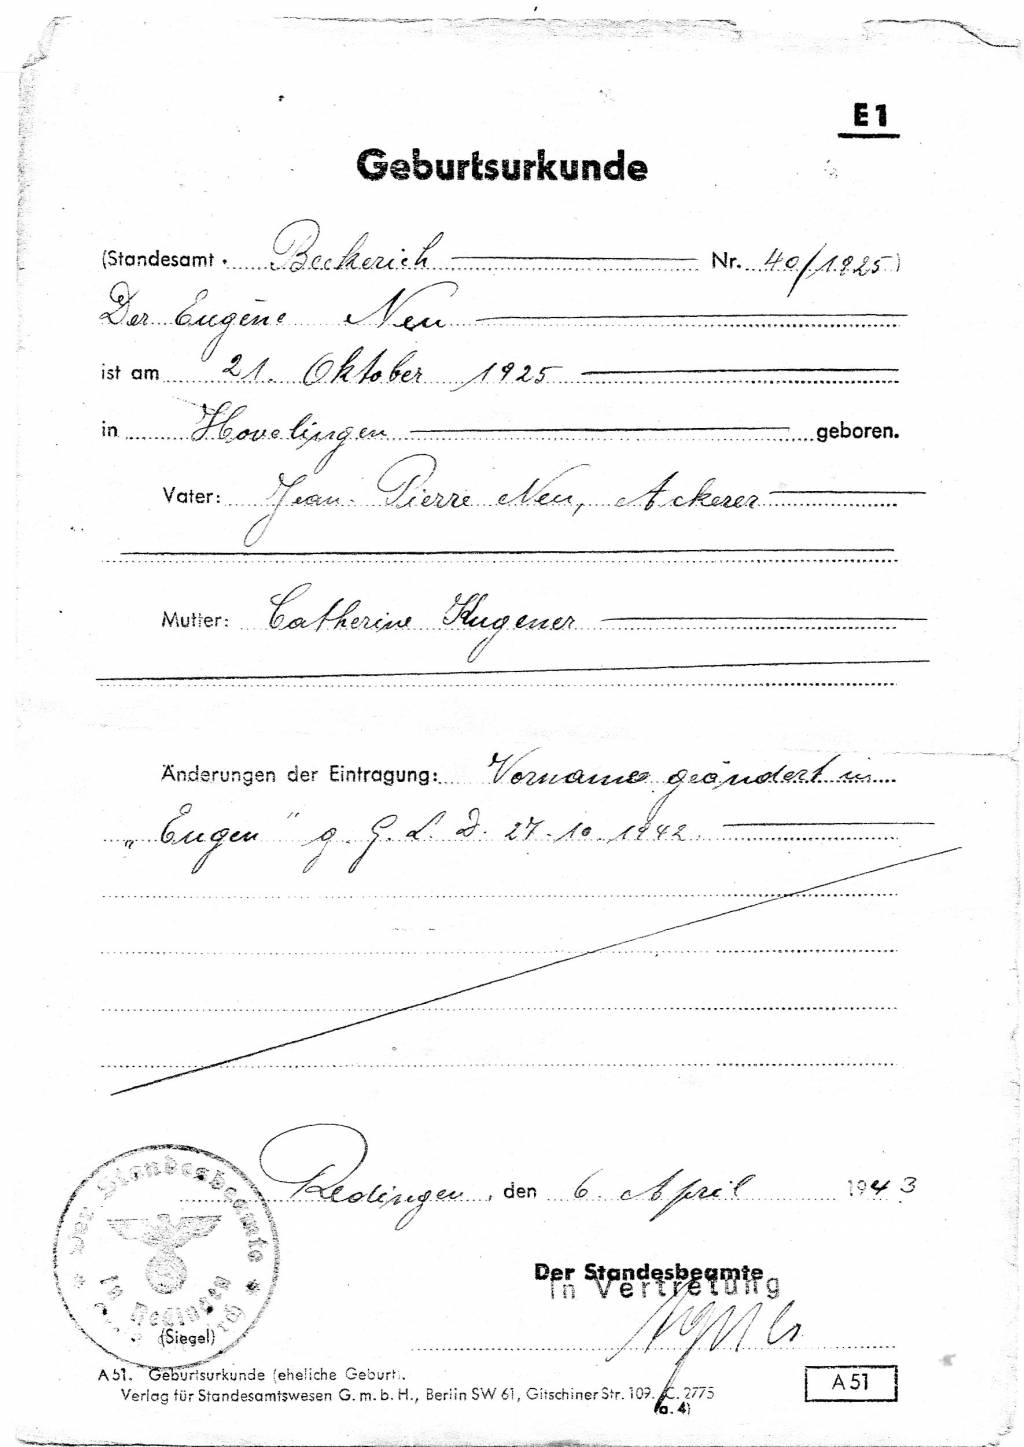 E 1
Geburtsurkunde
(Standesamt Beckerich Nr. 40/1925)
Der Eugène Neu
ist am 21. Oktober 1925
in Hovelingen geboren.
Vater: Jean-Pierre Neu, Ackerer
Mutter: Catherine Kugener
Änderungen der Eintragung: Vorname geändert in
„Eugen" g. G. L. D. 27.10.1942.
Redingen, den 6. April 1943
Der Standesbeamte
In Vertretung
Der Standesbeamte
in Redingen
(Siegel)
A 51. Geburtsurkunde (eheliche Geburt).
Verlag für Standesamtswesen G. m. b. H., Berlin SW 61, Gitschiner Str. 109. C. 2775
(a. 4)
A 51